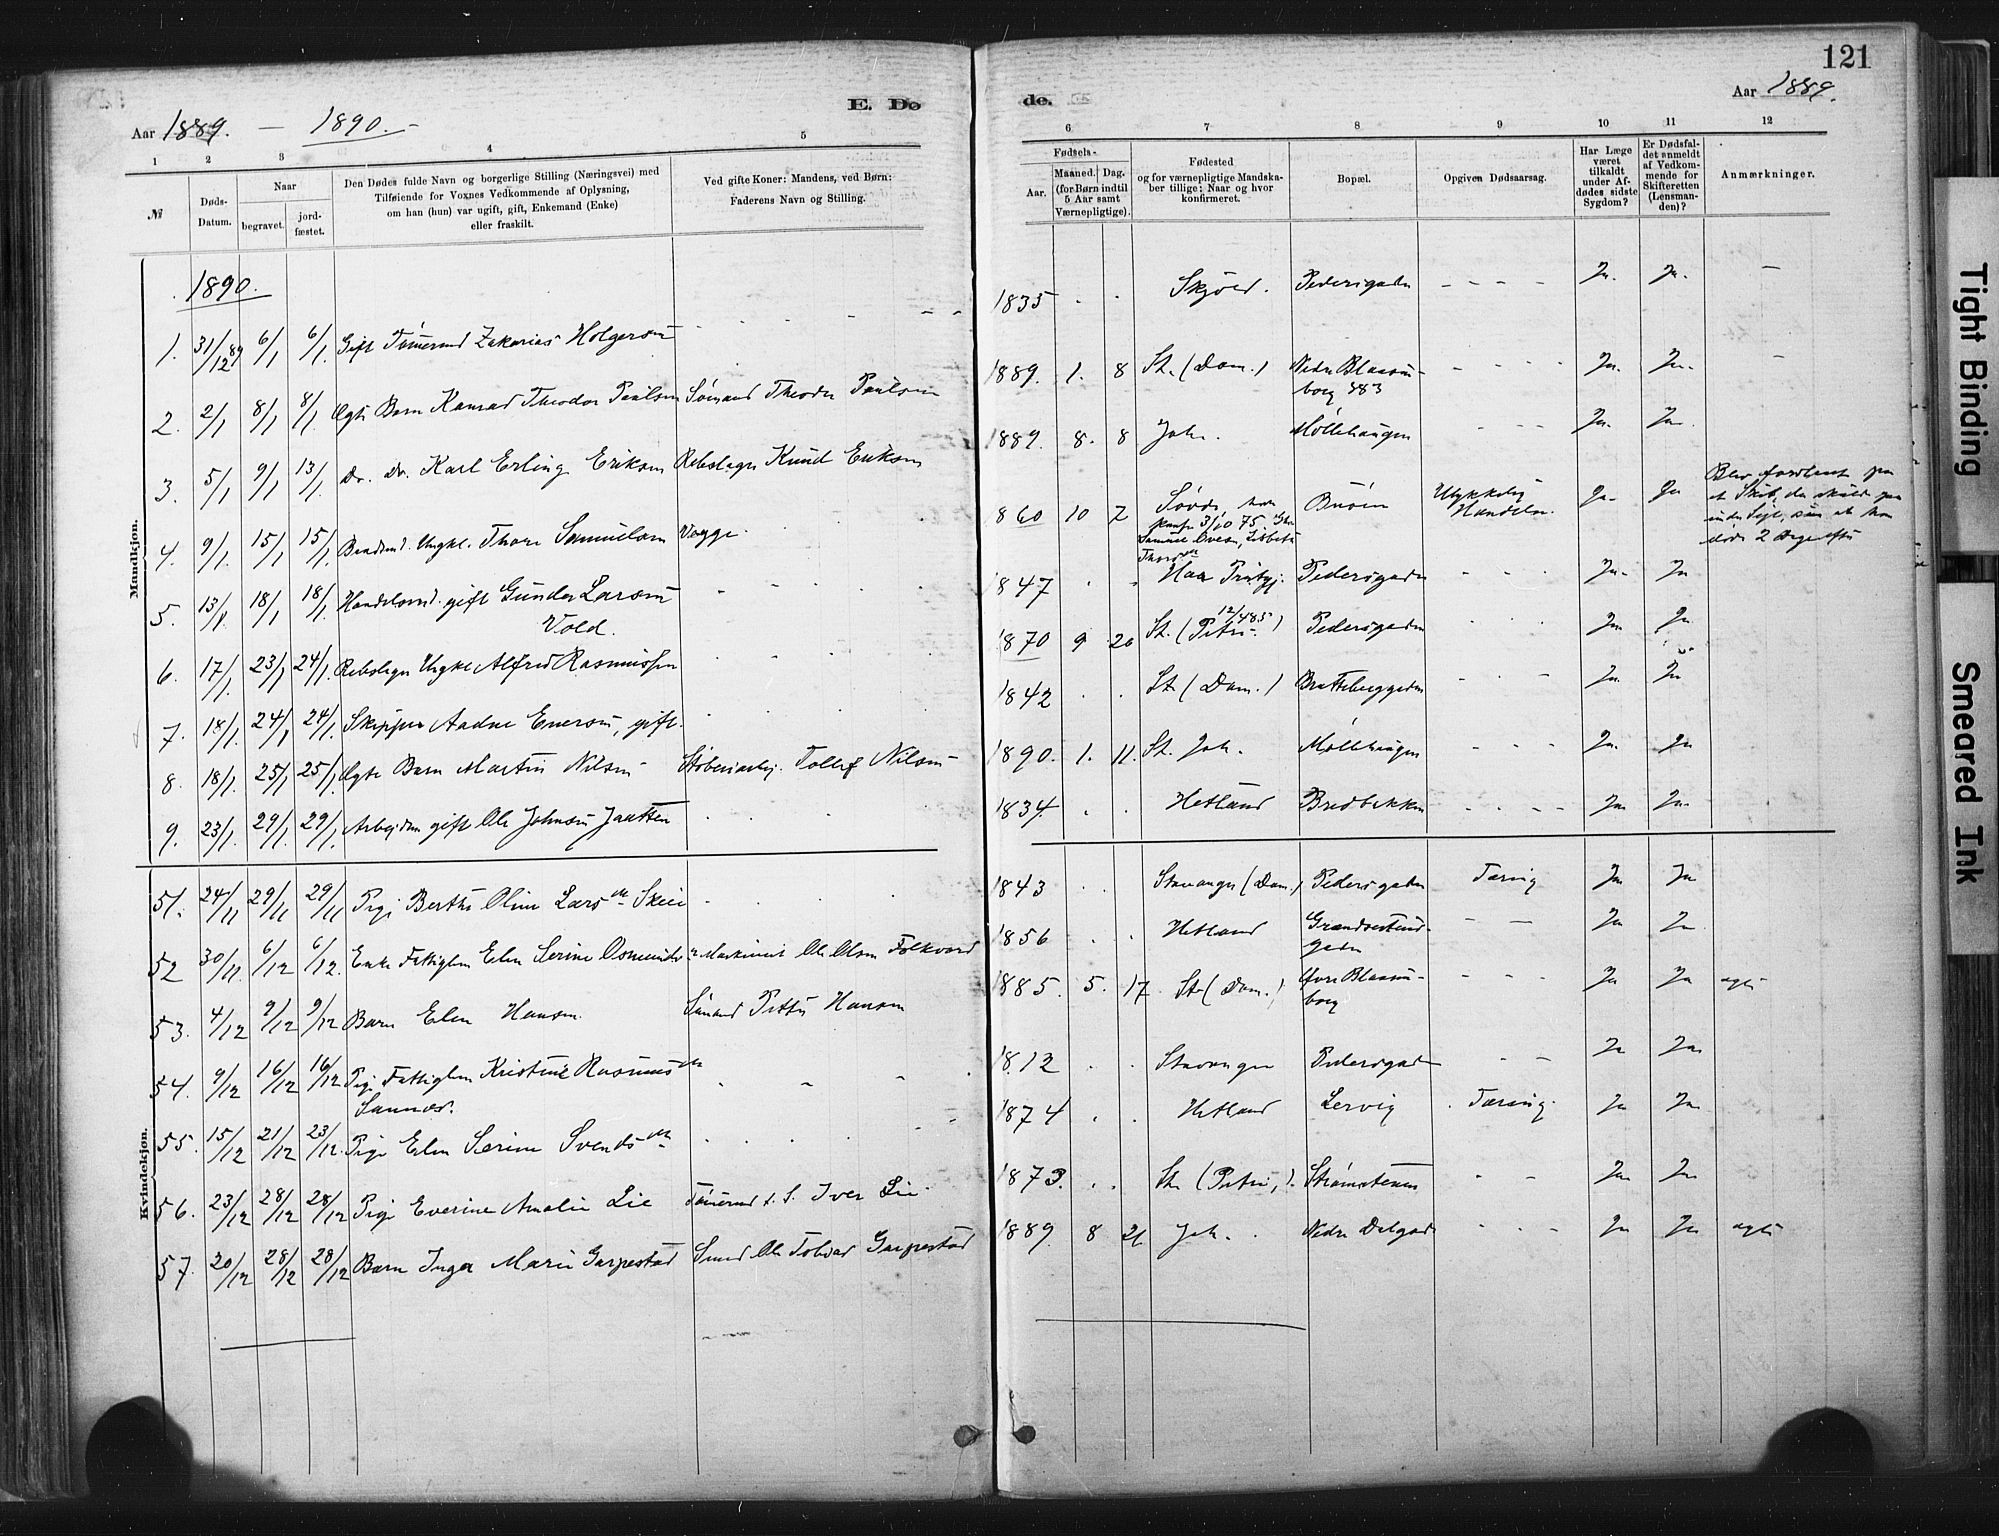 121
E. Dø
de.
Aar 1889. — 1890. —
Aar 1889.
1 2 3 4 5
6 7 8 9 10 11 12
№
Døds-
Datum.
Naar
begravet.
jord-
fæstet.
Den Dødes fulde Navn og borgerlige Stilling (Næringsvei) med
Tilføiende for Voxnes Vedkommende af Oplysning,
om han (hun) var ugift, gift, Enkemand (Enke)
eller fraskilt.
Ved gifte Koner: Mandens, ved Børn:
Faderens Navn og Stilling.
Fødsels-
Aar.
Maaned. Dag.
(for Børn indtil
5 Aar samt
Værnepligtige).
Fødested
og for værnepligtige Mandska-
ber tillige: Naar og hvor
konfirmeret.
Bopæl.
Opgiven Dødsaarsag.
Har Læge
været
tilkaldt
under Af-
dødes sidste
Sygdom?
Er Dødsfal-
det anmeldt
af Vedkom-
mende for
Skifteretten
(Lensman-
den)?
Anmærkninger.
Mandkjøn.
1890.
1. 31/12 89 6/1 6/1. Gift Tømermd Zakarias Holgersen
1835 Skjold. Pedersgaden Ja. Ja. —
2. 2/1 8/1 8/1 Ægte Barn Konrad Theodor Paulsen Sømand Theodor Paulsen
1889. 1. 8 St. (Dom.) Nedre Blaasen-
borg 383 Ja. Ja. —
3. 5/1 9/1 13/1. Do. Do. Karl Erling Eriksen Rebslager Knud Eriksen
1889. 8. 8 Joh. Møllehaugen Ja. Ja.
4. 9/1. 15/1 15/1. Ungk. Thore Samuelsen Vagge
1860 10 7 konfr 3/10 75. Buøen Ulykkelig
Hændelse. Ja. Ja
Blev fordknust paa
et Skib, der skulde gaa
under Sejl, saa at han
døde 2 Dage efter
5. 13/1 18/1 18/1 Handelsmd. gift Gunder Larsen
Vold.
1847 Haa Prstgj. Pedersgaden Ja. Ja
6. 17/1. 23/1 24/1. Rebslager Ungk. Alfred Rasmussen
1870 9 20 St. (Petri) 12/4 85 Pedersgaden Ja Ja
7. 18/1. 24/1 24/1. Skipper Aadne Enersen, gift.
1842 St. (Dom.) Bratteberggaden Ja. Ja
8. 18/1. 25/1 25/1 Ægte Barn Martin Nilsen Støberiarbj. Tollef Nilsen
1890. 1. 11. St. Joh. Møllehaugen Ja. Ja
9. 23/1. 29/1. 29/1. Arbeider gift Ole Johnsen Jaatten
1834. Hetland Bredbekken Ja Ja.
Kvindekjøn.
51. 24/11 29/11 29/11 Pige Berthe Oline Larsdtr Skeie
1843 Stavanger (Dom.) Pedersgaden Tæring Ja Ja
52 30/11. 6/12 6/12. Enke Fattiglem Elen Serine Osmundsdr Maskinist Ole Olsen Folkvord
1856 Hetland
gaden Ja Ja
53. 4/12 9/12 9/12 Barn Elen Hansen. Sømand Petter Hansen
1885. 5. 17 St. (Dom.) Øvre Blaasen-
borg Ja Ja ægte
54. 9/12 16/12 16/12 Pige Fattiglem Kristine Rasmusdtr
Sannes.
1812 Stavanger Pedersgaden Ja Ja
55. 15/12 21/12 23/12. Pige Elen Serine Svendsdtr
1874 Hetland Lervig Tæring. Ja Ja
56. 23/12 28/12 28/12 Pige Everine Amalie Lie Tømermd t. S. Iver Lie.
1873. St. (Petri,). Strømstenen Ja Ja
57. 20/12 28/12 28/12 Barn Inger Marie Garpestad Smed Ole Tobias Garpestad
1889. 8 21 Joh. Nedre Dalgade Ja Ja ægte
Tight Binding
Smeared Ink